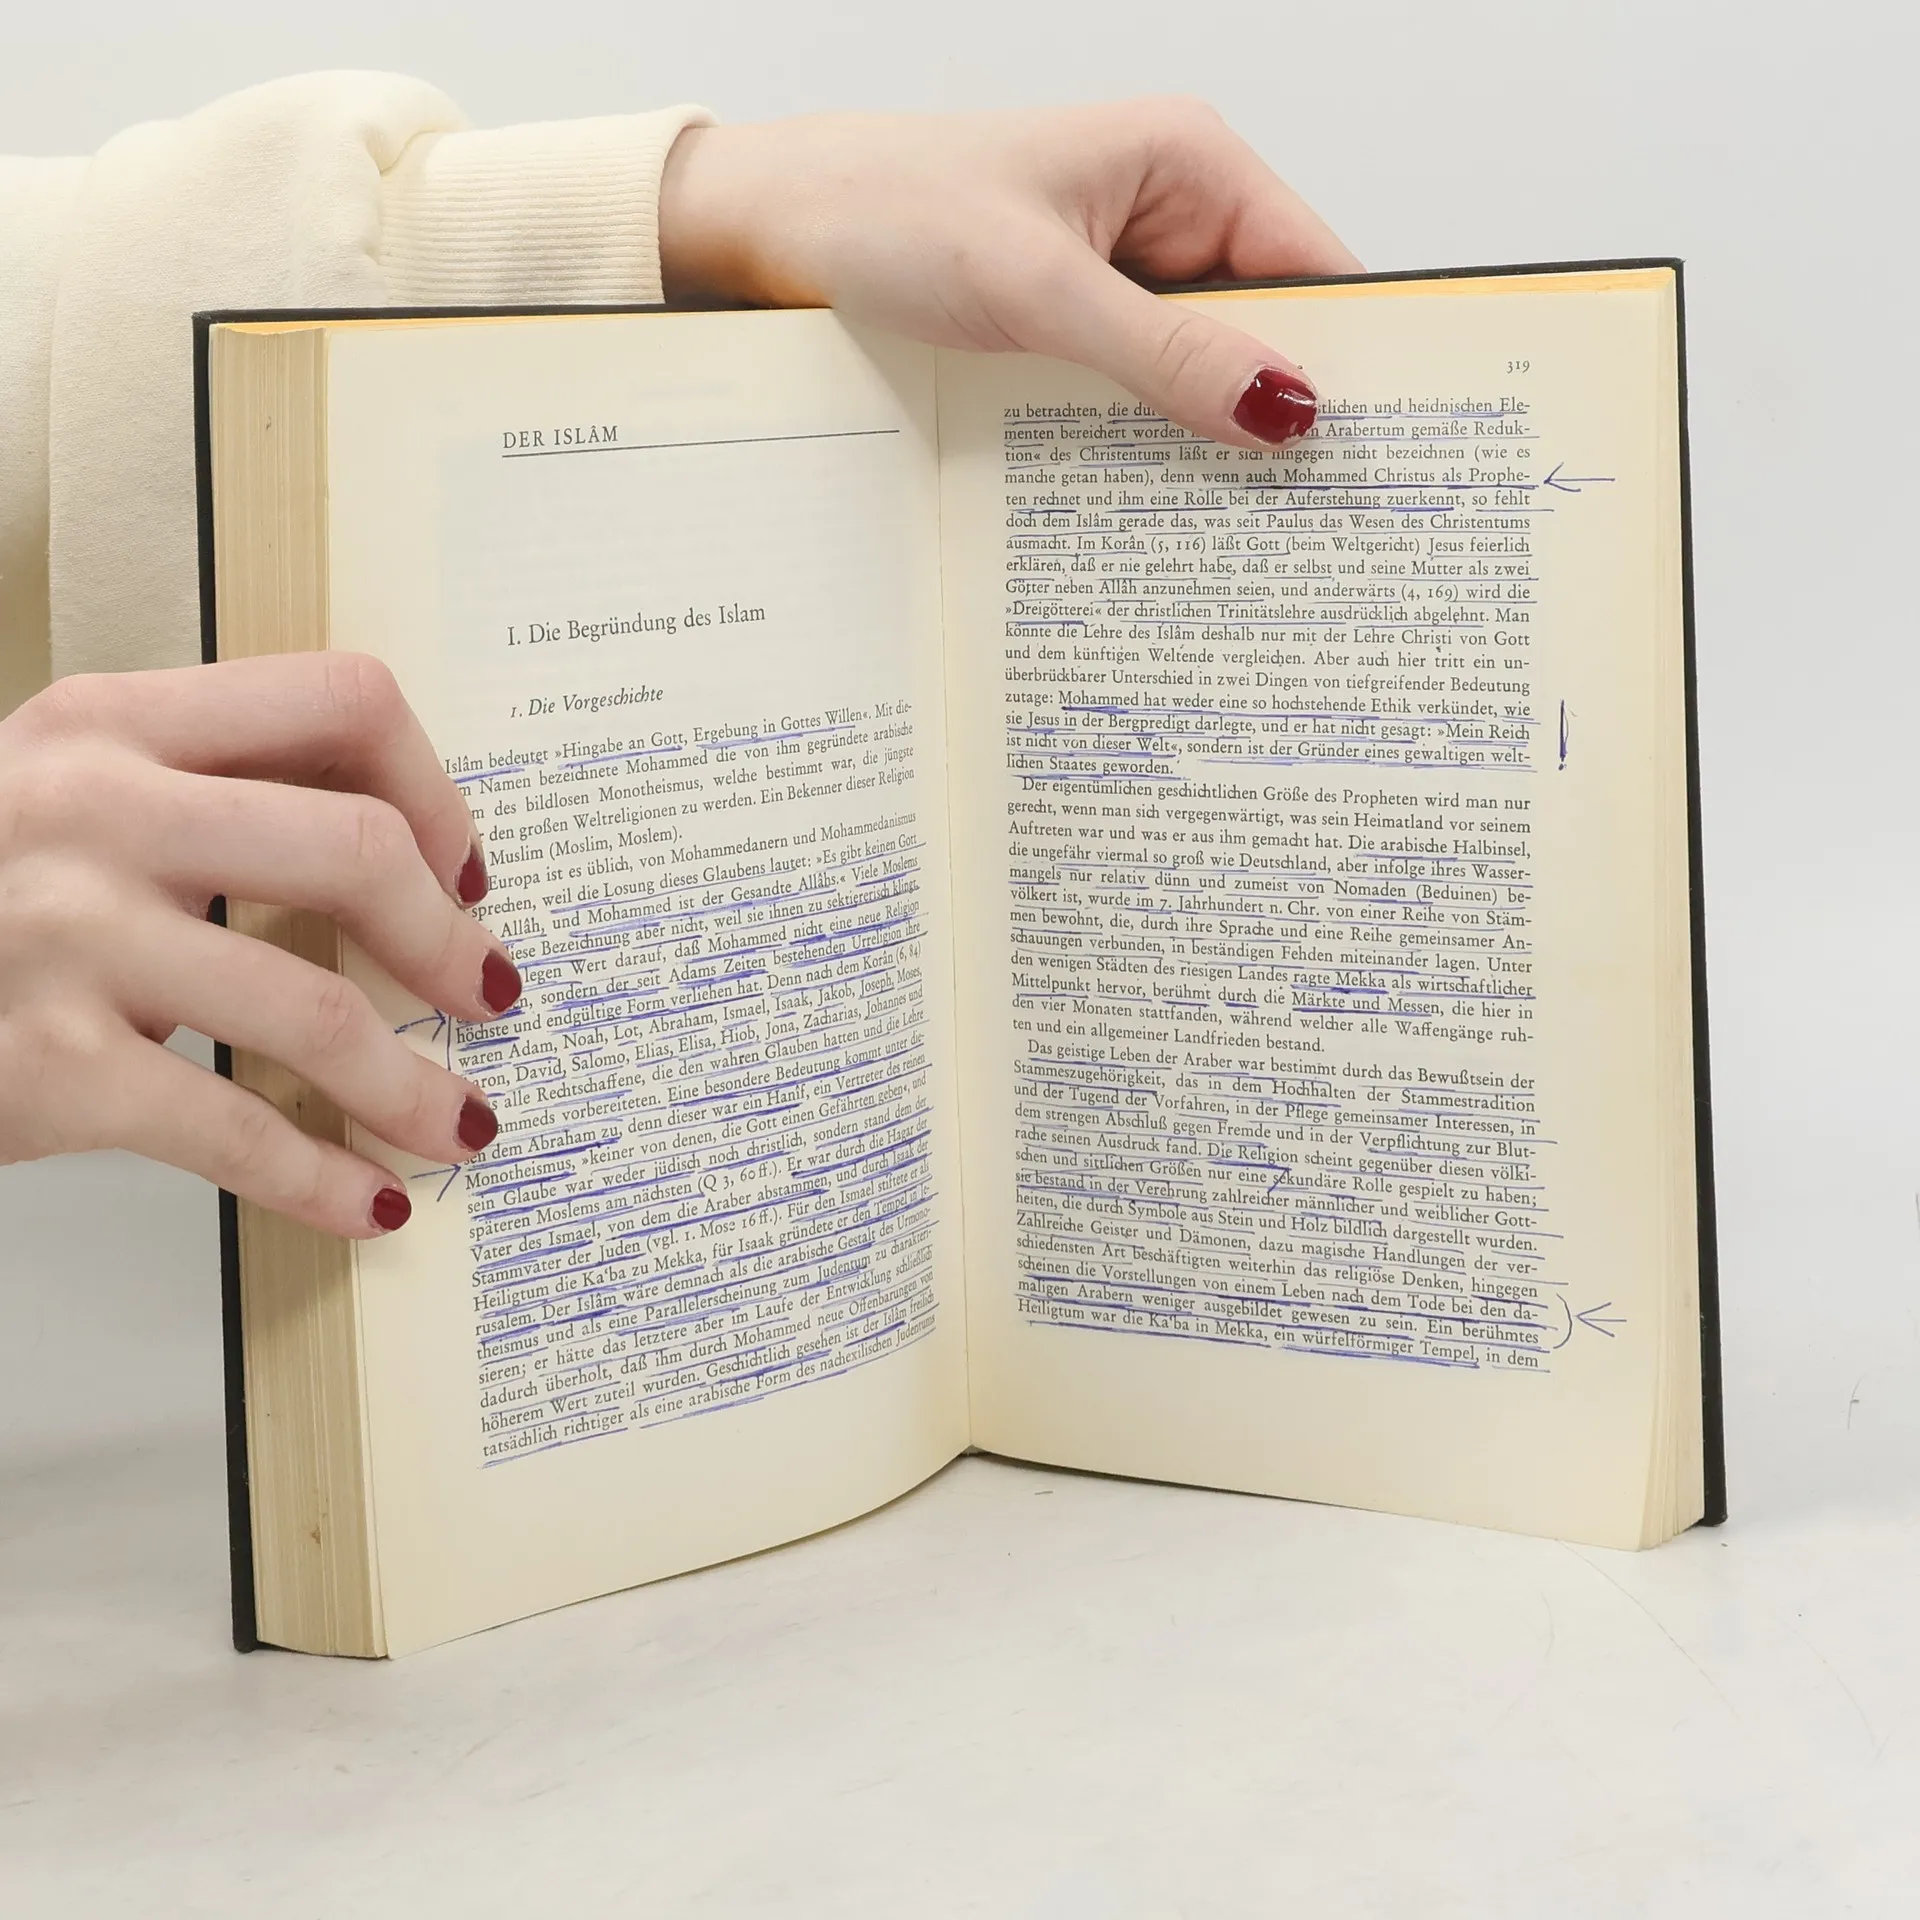 DER ISLÂM
I. Die Begründung des Islam
1. Die Vorgeschichte
Islâm bedeutet »Hingabe an Gott, Ergebung in Gottes Willen«. Mit die-
Namen bezeichnete Mohammed die von ihm gegründete arabische
des bildlosen Monotheismus, welche bestimmt war, die jüngste
den großen Weltreligionen zu werden. Ein Bekenner dieser Religion
Muslim (Moslim, Moslem).
Europa ist es üblich, von Mohammedanern und Mohammedanismus
sprechen, weil die Losung dieses Glaubens lautet: »Es gibt keinen Gott
Allâh, und Mohammed ist der Gesandte Allâhs.« Viele Moslems
diese Bezeichnung aber nicht, weil sie ihnen zu sektiererisch klingt,
legen Wert darauf, daß Mohammed nicht eine neue Religion
sondern der seit Adams Zeiten bestehenden Urreligion ihre
höchste und endgültige Form verliehen hat. Denn nach dem Korân (6, 84)
waren Adam, Noah, Lot, Abraham, Ismael, Isaak, Jakob, Joseph, Moses,
Aaron, David, Salomo, Elias, Elisa, Hiob, Jona, Zacharias, Johannes und
alle Rechtschaffene, die den wahren Glauben hatten und die Lehre
vorbereiteten. Eine besondere Bedeutung kommt unter die-
sen dem Abraham zu, denn dieser war ein Hanîf, ein Vertreter des reinen
Monotheismus, »keiner von denen, die Gott einen Gefährten geben«, und
sein Glaube war weder jüdisch noch christlich, sondern stand dem der
späteren Moslems am nächsten (Q 3, 60 ff.). Er war durch die Hagar der
Vater des Ismael, von dem die Araber abstammen, und durch Isaak der
Stammvater der Juden (vgl. 1. Mose 16 ff.). Für den Ismael stiftete er als
Heiligtum die Ka'ba zu Mekka, für Isaak gründete er den Tempel in Je-
rusalem. Der Islâm wäre demnach als die arabische Gestalt des Urmono-
theismus und als eine Parallelerscheinung zum Judentum zu charakteri-
sieren; er hätte das letztere aber im Laufe der Entwicklung schließlich
dadurch überholt, daß ihm durch Mohammed neue Offenbarungen von
höherem Wert zuteil wurden. Geschichtlich gesehen ist der Islâm freilich
tatsächlich richtiger als eine arabische Form des nachexilischen Judentums
319
zu betrachten, die und heidnischen Ele-
menten bereichert worden Arabertum gemäße Reduk-
tion« des Christentums läßt er sich hingegen nicht bezeichnen (wie es
manche getan haben), denn wenn auch Mohammed Christus als Prophe-
ten rechnet und ihm eine Rolle bei der Auferstehung zuerkennt, so fehlt
doch dem Islâm gerade das, was seit Paulus das Wesen des Christentums
ausmacht. Im Korân (5, 116) läßt Gott (beim Weltgericht) Jesus feierlich
erklären, daß er nie gelehrt habe, daß er selbst und seine Mutter als zwei
Götter neben Allâh anzunehmen seien, und anderwärts (4, 169) wird die
»Dreigötterei« der christlichen Trinitätslehre ausdrücklich abgelehnt. Man
könnte die Lehre des Islâm deshalb nur mit der Lehre Christi von Gott
und dem künftigen Weltende vergleichen. Aber auch hier tritt ein un-
überbrückbarer Unterschied in zwei Dingen von tiefgreifender Bedeutung
zutage: Mohammed hat weder eine so hochstehende Ethik verkündet, wie
sie Jesus in der Bergpredigt darlegte, und er hat nicht gesagt: »Mein Reich
ist nicht von dieser Welt«, sondern ist der Gründer eines gewaltigen welt-
lichen Staates geworden.
Der eigentümlichen geschichtlichen Größe des Propheten wird man nur
gerecht, wenn man sich vergegenwärtigt, was sein Heimatland vor seinem
Auftreten war und was er aus ihm gemacht hat. Die arabische Halbinsel,
die ungefähr viermal so groß wie Deutschland, aber infolge ihres Wasser-
mangels nur relativ dünn und zumeist von Nomaden (Beduinen) be-
völkert ist, wurde im 7. Jahrhundert n. Chr. von einer Reihe von Stäm-
men bewohnt, die, durch ihre Sprache und eine Reihe gemeinsamer An-
schauungen verbunden, in beständigen Fehden miteinander lagen. Unter
den wenigen Städten des riesigen Landes ragte Mekka als wirtschaftlicher
Mittelpunkt hervor, berühmt durch die Märkte und Messen, die hier in
den vier Monaten stattfanden, während welcher alle Waffengänge ruh-
ten und ein allgemeiner Landfrieden bestand.
Das geistige Leben der Araber war bestimmt durch das Bewußtsein der
Stammeszugehörigkeit, das in dem Hochhalten der Stammestradition
und der Tugend der Vorfahren, in der Pflege gemeinsamer Interessen, in
dem strengen Abschluß gegen Fremde und in der Verpflichtung zur Blut-
rache seinen Ausdruck fand. Die Religion scheint gegenüber diesen völki-
schen und sittlichen Größen nur eine sekundäre Rolle gespielt zu haben;
sie bestand in der Verehrung zahlreicher männlicher und weiblicher Gott-
heiten, die durch Symbole aus Stein und Holz bildlich dargestellt wurden.
Zahlreiche Geister und Dämonen, dazu magische Handlungen der ver-
schiedensten Art beschäftigten weiterhin das religiöse Denken, hingegen
scheinen die Vorstellungen von einem Leben nach dem Tode bei den da-
maligen Arabern weniger ausgebildet gewesen zu sein. Ein berühmtes
Heiligtum war die Ka'ba in Mekka, ein würfelförmiger Tempel, in dem